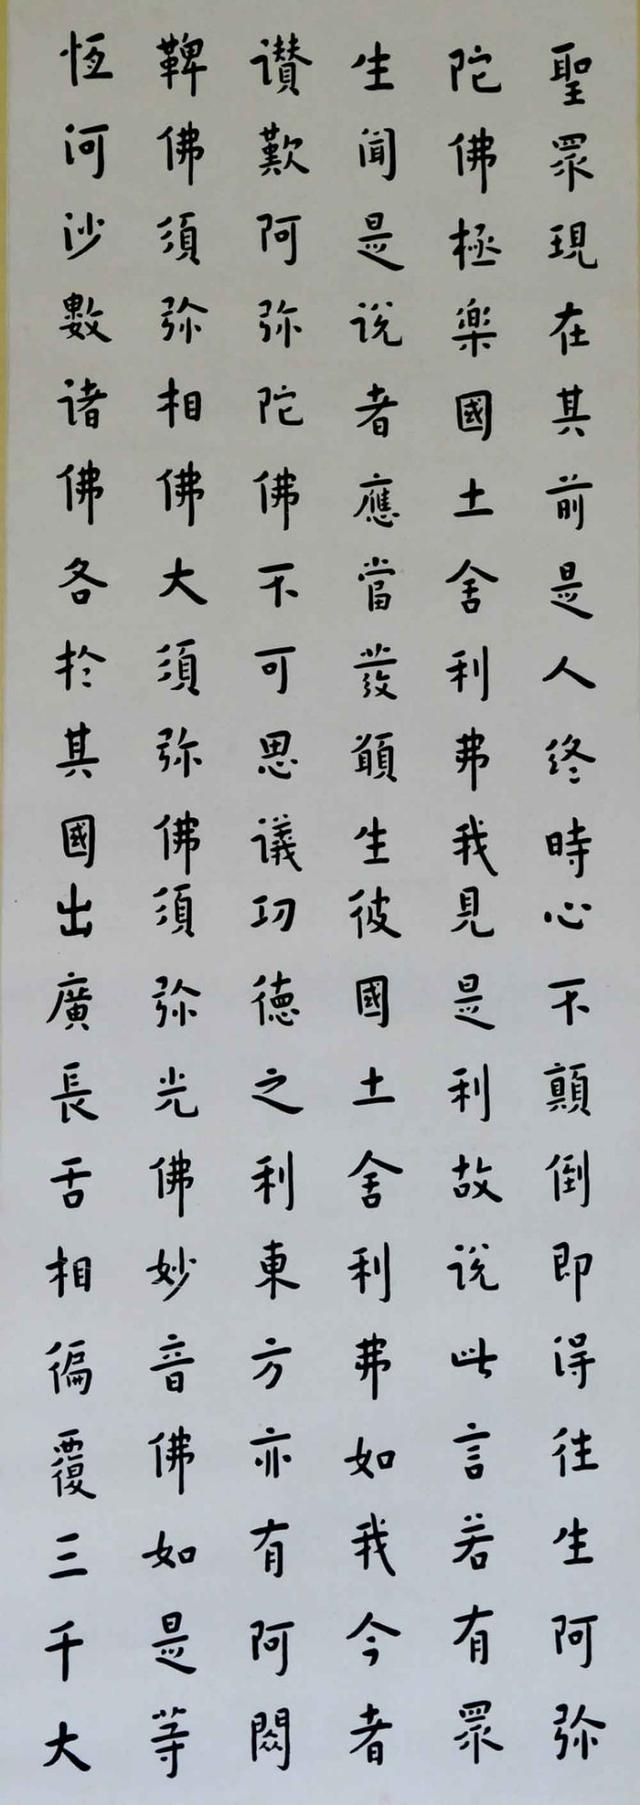 聖眾現在其前是人終時心不顛倒即得往生阿弥
陀佛極樂國土舍利弗我見是利故説此言若有眾
生聞是説者應當發願生彼國土舍利弗如我今者
讃歎阿弥陀佛不可思議功德之利東方亦有阿閦
鞞佛須弥相佛大須弥佛須弥光佛妙音佛如是等
恆河沙數諸佛各於其國出廣長舌相徧覆三千大